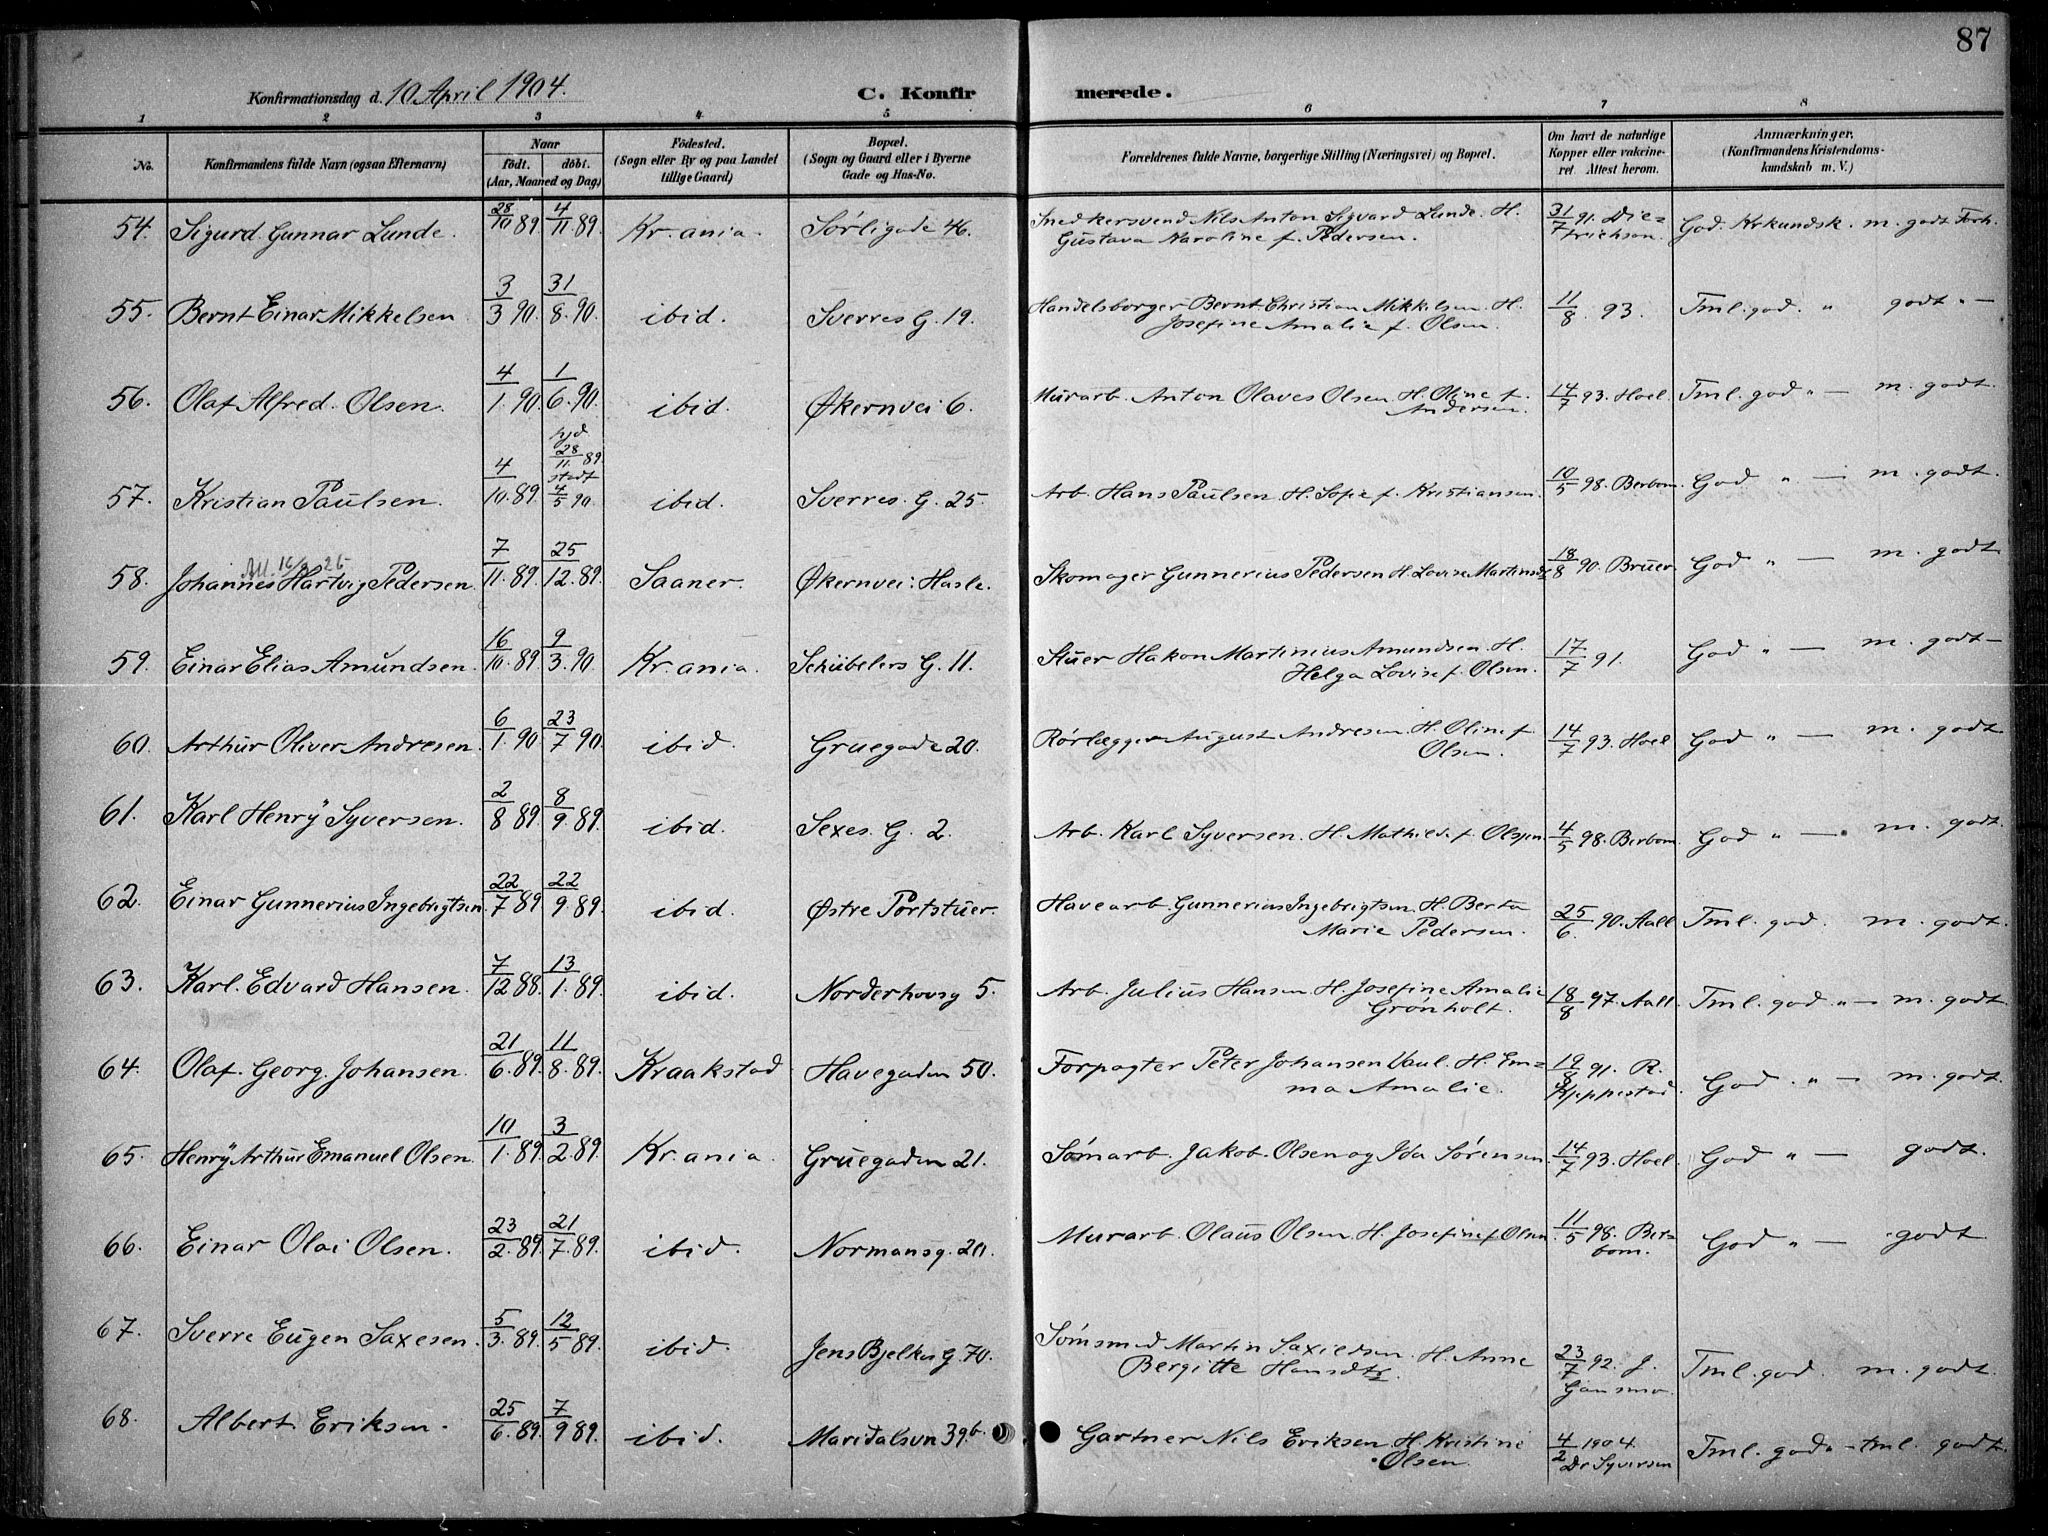 87
Konfirmationsdag d. 10 April 1904. C. Konfir merede.
1 2 3 4 5 6 7 8
No. Konfirmandens fulde Navn (ogsaa Efternavn) Naar født. døbt. (Aar, Maaned og Dag) Fødested. (Sogn eller By og paa Landet tillige Gaard) Bopæl. (Sogn og Gaard eller i Byerne Gade og Hus-No. Forældrenes fulde Navne, borgerlige Stilling (Næringsvei) og Bopæl. Om havt de naturlige Kopper eller vakcineret. Attest herom. Anmærkninger, (Konfirmandens Kristendomskundskab m. V.)
54. Sigurd Gunnar Lunde. 28/10 89 4/11 89. Kr.ania. Sørligade 46. Snedkersvend Nils Anton Sigvard Lunde. H. Gustava Karoline f. Pedersen. 31/7 91. Dietrichson. God. Krkundsk. m. godt Forh.
55. Bernt Einar Mikkelsen 3/3 90. 31/8 90. ibid. Sverres G. 19. Handelsborger Bernt Christian Mikkelsen H. Josefine Amalie f. Olsen. 11/8. 93. Tml. god. " godt " —
56. Olaf Alfred. Olsen. 4/1. 90. 1/6. 90. ibid. Økernvei 6. Murarb. Anton Olaves Olsen H. Oline f. Andersen. 14/7 93. Hoel. Tml. god " — m. godt.
57. Kristian Paulsen. 4/10. 89. hjd 28/11 89 stadf 4/5 90. ibid. Sverres. G. 25. Arb. Hans Paulsen H. Sofie f. Kristiansen. 10/5 98. Berbom. God " — m. godt.
58. Johannes Hartvig Pedersen. 7/11. 89. 25/12. 89. Saaner. Økernvei: Hasle. Skomager Gunnerius Pedersen H. Lovise Martinsdtr 18/8 90. Bruer. God " — m. godt
59. Einar Elias Amundsen. 16/10. 89. 9/3. 90. Kr.ania. Schübelers G. 11. Stuer Hakon Martinius Amundsen H. Helga Lovise f. Olsen. 17/7 91. God " — m. godt —
60. Arthur Oliver Andresen. 6/1. 90 23/7 90. ibid. Gruegade 20. Rørlægger August Andresen H. Oline f. Olsen. 14/7 93. Hoel God " — m. godt
61. Karl Henry Syversen. 2/8 89. 8/9. 89. ibid. Sexes. G. 2. Arb. Karl Syversen. H. Mathilde f. Olsen. 4/5 98. Berbom. God " — m. godt.
62. Einar Gunnerius Ingebrigtsen. 22/7 89 22/9. 89. ibid. Østre Portstuer. Havearb. Gunnerius Ingebrigtsen. H. Berta Marie Pedersen. 25/6. 90. Aall Tml. god. m. godt.
63. Karl. Edvard Hansen. 7/12 88. 13/1. 89. ibid. Norderhovsg 5. Arb. Julius Hansen H. Josefine Amalie Grønholt. 18/8 97. Aall. Tml. god. " — m. godt
64. Olaf. Georg. Johansen. 21/6. 89. 11/8. 89. Kraakstad Havegaden 50. Forpagter Peter Johansen Vaul. H. Emma Amalie. 19/8 91. R. Kjeppestad. God. " — m. godt.
65. Henry Arthur Emanuel Olsen. 10/1. 89. 3/2. 89. Kr.ania. Gruegaden 21. Sømarb. Jakob. Olsen og Ida Sørensen. 14/7 93. Hoel. God " — godt.
66. Einar Olai Olsen. 23/2. 89. 21/7. 89. ibid. Normansg. 20. Murarb. Olaus Olsen H. Josefine f. Olsen. 11/5 98. Berbom. God " — godt
67. Sverre Eugen Saxesen. 5/3. 89. 12/5 89. ibid. Jens Bjelkes G. 70. Sømsmed Martin Saxildsen. H. Anne Bergitte Hansdtr. 23/7 92. J. Gansmo. Tml. god. m. godt.
68. Albert Eriksen. 25/6. 89. 7/9 89. ibid. Maridalsvn 39b. Gartner Nils Eriksen H. Kristine Olsen. 4/2 1904. Dr Syversen Tml. god " — tml. godt.